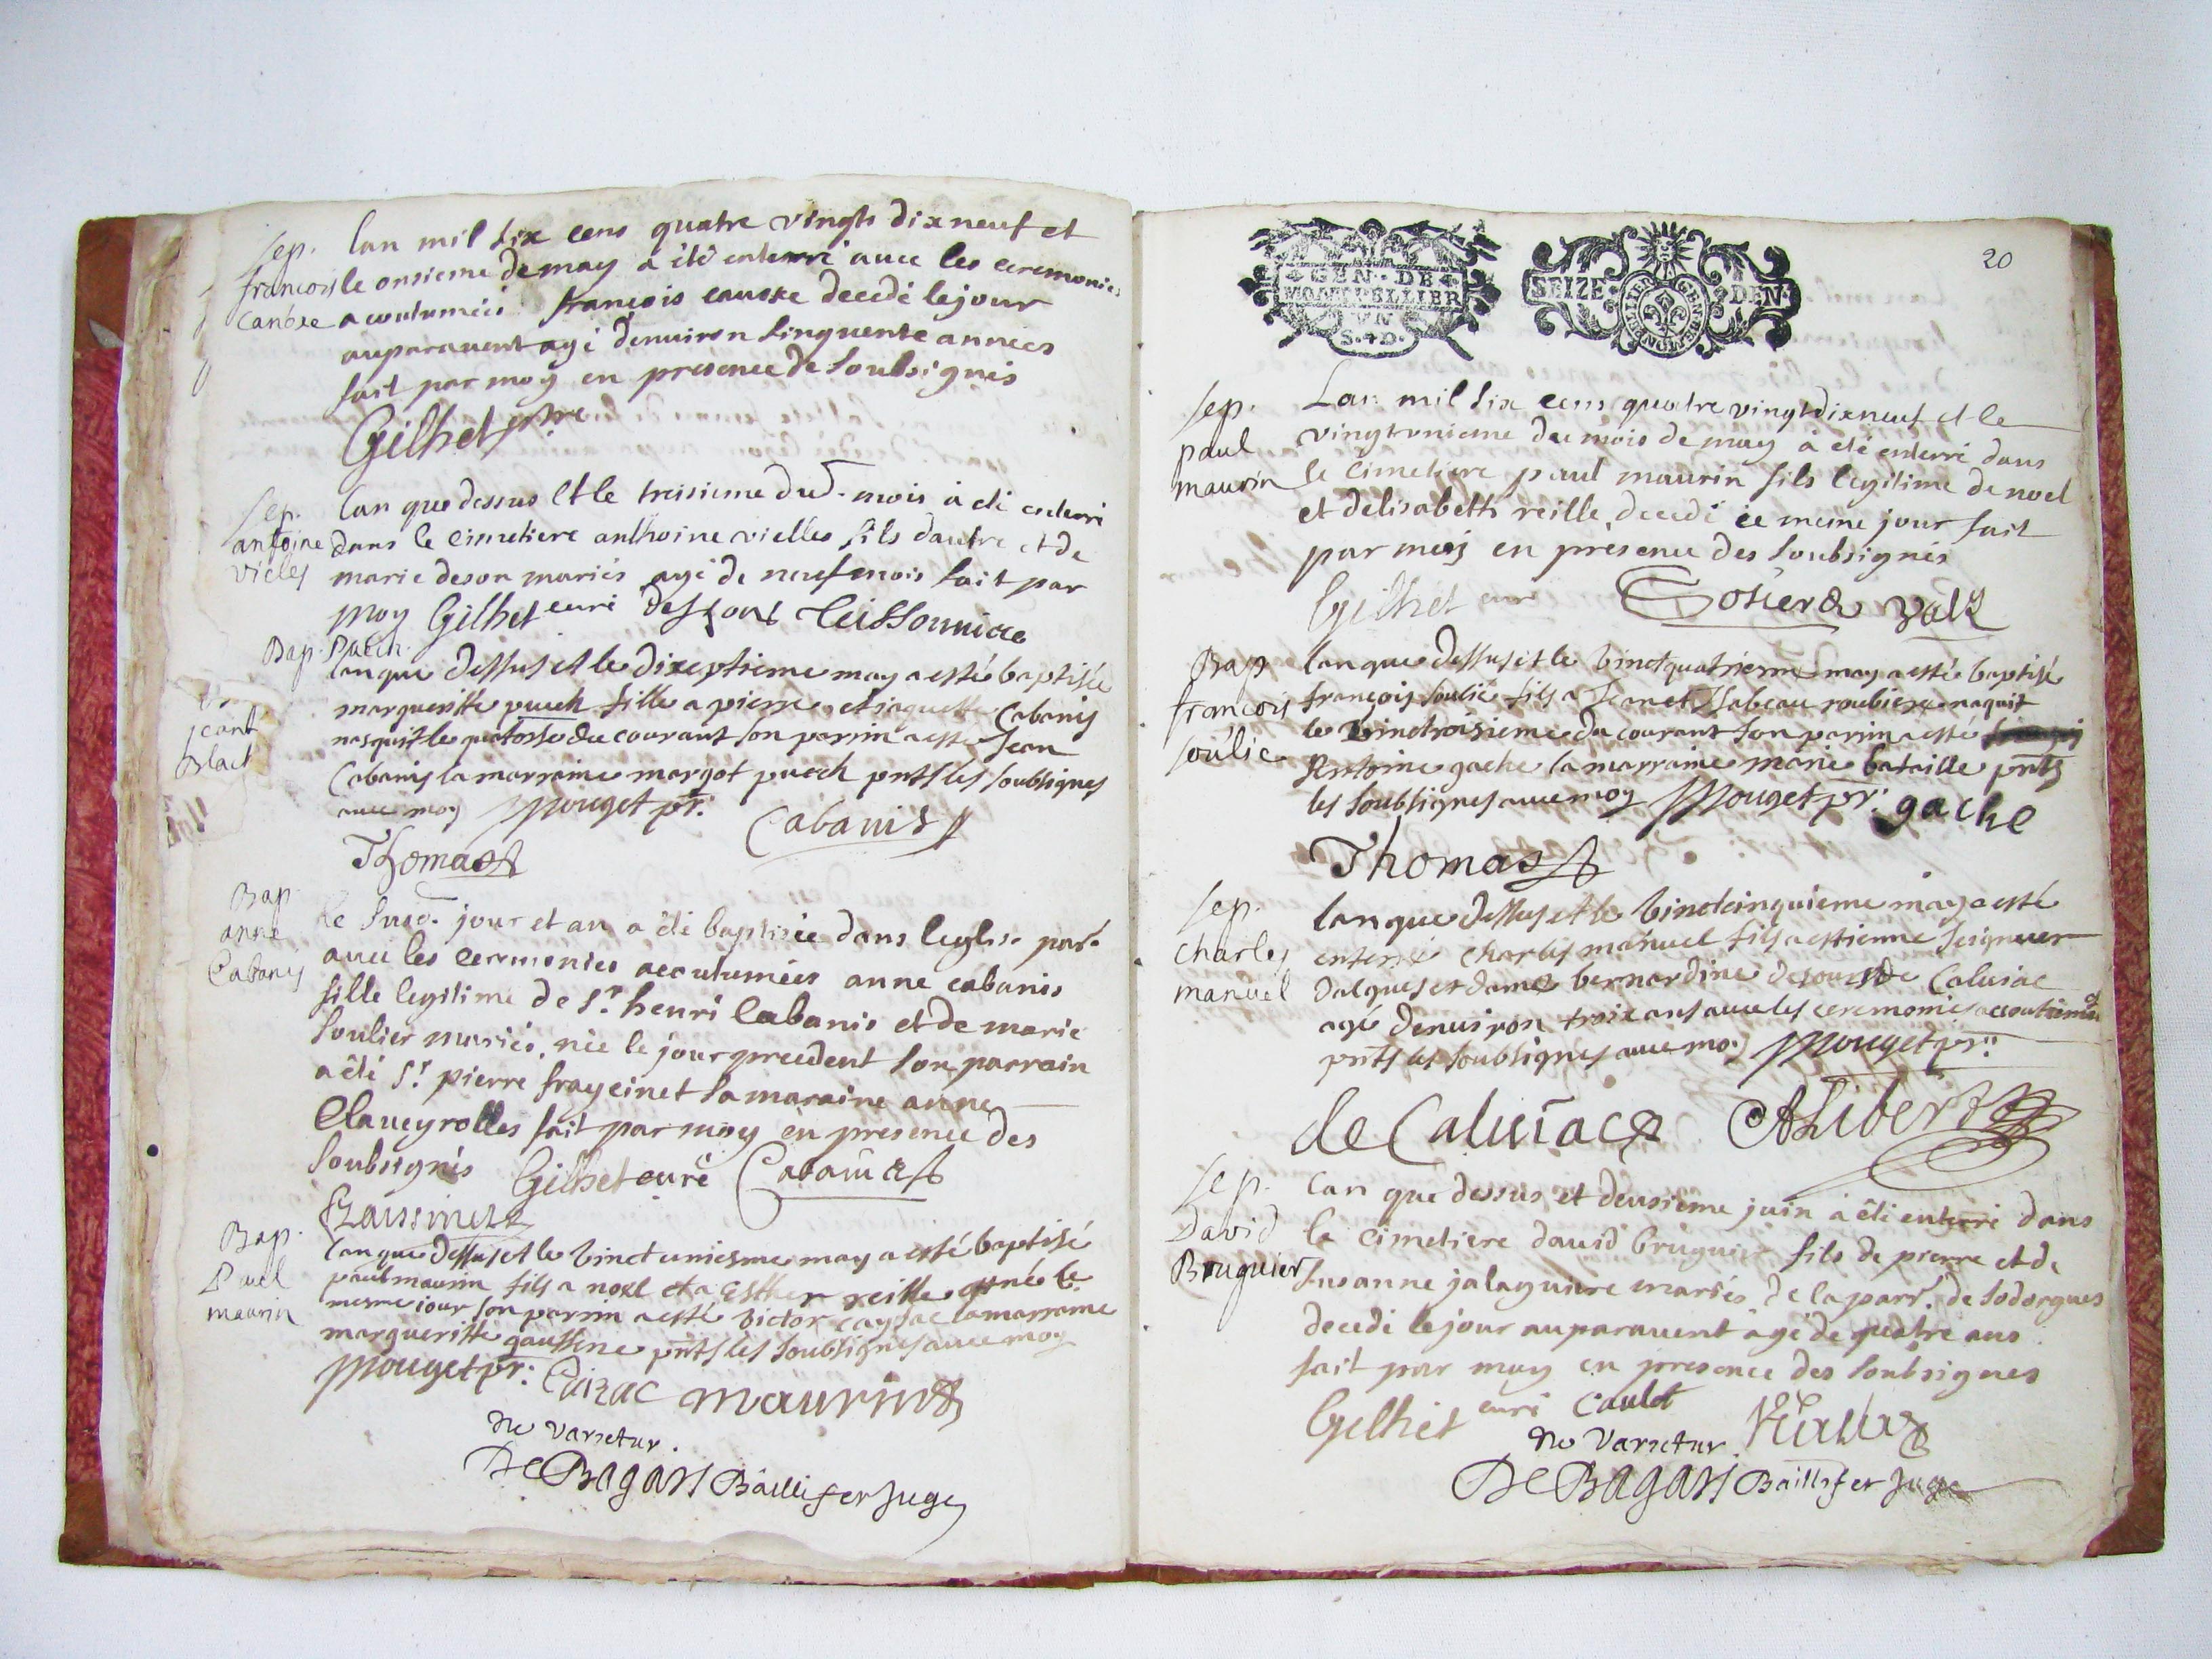 Sep.
francois
canose
lan mil six cens quatre vingts dix neuf et
le onsieme de may a été enterré avec les ceremonies
acoutumées françois causse decedé le jour
auparavent agé denuiron sinquente années
fait par moy en presence de soubsignés
Gilhet ptre
Sep.
antoine
vieles
lan que dessus et le tresieme dud. mois à eté enterré
dans le cimetiere anthoine vielles fils dautre et de
marie deson mariés agé de neuf mois fait par
moy Gilhet curé Teissonniere
Bap. puech.
lan que dessus et le dixseptieme may a esté baptisée
margueritte puech fille a pierre et jaquette Cabanis
nasquit le quatorse du courant son parrin a esté Jean
Cabanis la marraine margot puech pnts les soubsignes
avec moy Mouget pr. Cabanis
Thomas
Bap
anne
Cabanis
Le susd. jour et an a été baptisée dans leglise par.
avec les ceremonies accutumées anne cabanis
fille legitime de Sr. henri Cabanis et de marie
Soulier mariés, née le jour precedent son parrain
a été Sr. pierre frayeinet sa maraine anne
Claveyrolles fait par moy en presence des
soubsignés Gilhet curé Cabanis
Fraissines
Bap.
Paul
maurin
lan que dessus et le vinct uniesme may a esté baptisé
paul maurin fils a noel et a Esther reille et né le
mesme jour son parrin a esté victor cayzac la marraine
margueritte gaussene pnts les soubsignes avec moy
Mouget pr. Caizac maurin
Ne Varietur.
De Bagars Baillif et Juge
20
GEN. DE
MONTPELLIER
UN
S. 4 D.
SEIZE DEN.
MONTPELLIER GEN. DE
Sep.
paul
maurin
Lan mil six cens quatre vingt dix neuf et le
vingt unieme du mois de may à été enterré dans
le cimetiere paul maurin fils legitime de noel
et delisabeth reille, decedé ce meme jour fait
par moy en presence des soubsignés
Gilhet curé
Bap
francois
soulie
lan que dessus et le vinctquatrieme may a esté baptisé
françois soulié fils a Jean et Isabeau roubiere naquit
le vinctroisieme du courant son parrin a esté
Antoine gache la marraine marie bataille pnts
les soubsignes avec moy Mouget pr. gache
Thomas
Sep.
Charles
manuel
lan que dessus et le vinctcinquieme may a esté
enterré Charles manuel fils a estienne seigneur
Dalgues et dame bernardine de Calviac
agé denviron troix ans avec les ceremonies accoutumés
pnts les soubsignes avec moy Mouget pr.
de Calviac Alibert
Sep.
David
Bruguier
Lan que dessus et deusieme juin à été enterré dans
le cimetiere david bruguier fils de pierre et de
susanne jalaguiere mariés de la parr. de sodorgues
decedé le jour auparavent agé de quatre ans
fait par moy en presence des soubsignes
Gilhet curé Caulet
Ne Varietur.
De Bagars Baillif et Juge